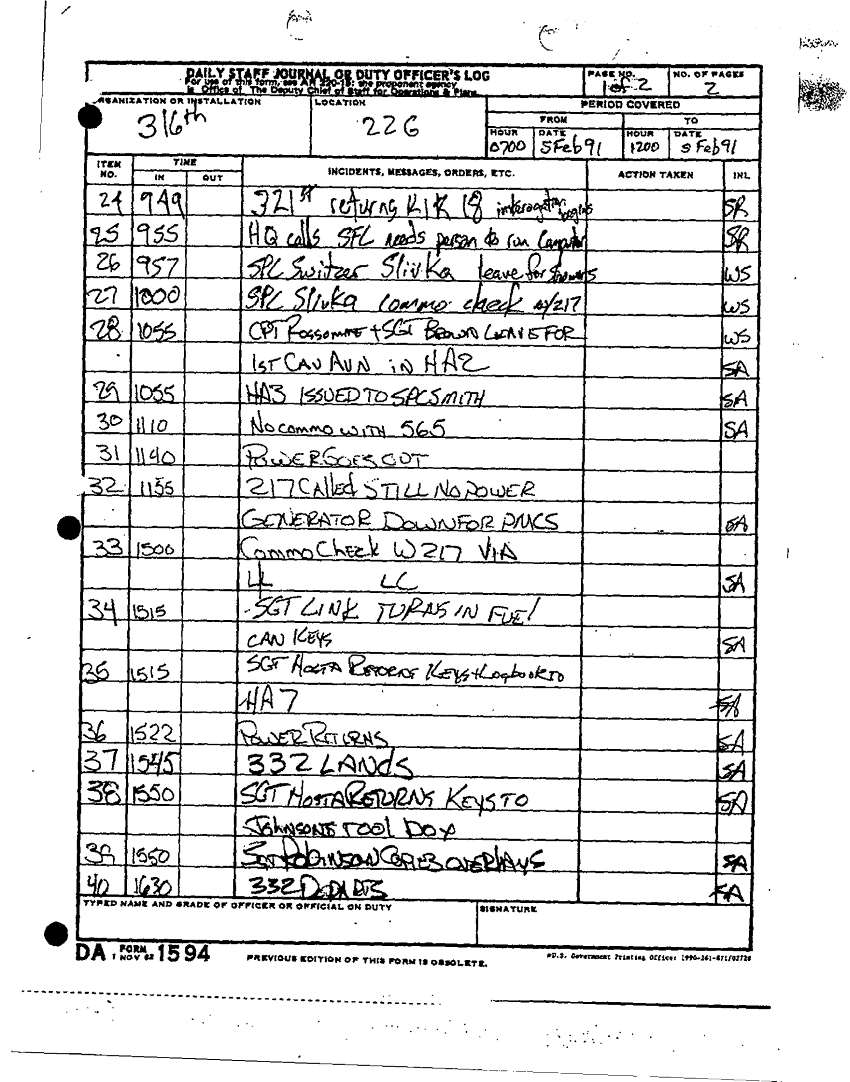 DAILY STAFF JOURNAL OR DUTY OFFICER'S LOG
For use of this form, see AR 220-15; the proponent agency
is Office of The Deputy Chief of Staff for Operations & Plans.
PAGE NO.
1 of 2
NO. OF PAGES
2
ORGANIZATION OR INSTALLATION
316th
LOCATION
22G
PERIOD COVERED
FROM
TO
HOUR
0700
DATE
5Feb91
HOUR
1200
DATE
5Feb91
ITEM NO.
TIME
IN
OUT
INCIDENTS, MESSAGES, ORDERS, ETC.
ACTION TAKEN
INL
24 949 321st returns begins SR
25 955 HQ calls SFC needs person to run Computer SR
26 957 SPC Switzer Slivka leave for Showers WS
27 1000 SPC Slivka commo check w/217 WS
28 1055 CPT + SGT Brown LEAVE FOR WS
1ST CAV AVN IN HA2 SA
29 1055 HA3 ISSUED TO SPC SMITH SA
30 1110 No commo with 565 SA
31 1140 POWER GOES OUT
32 1155 217 Called STILL NO POWER
GENERATOR DOWN FOR PMCS SA
33 1500 Commo Check W 217 VIA
LL LC SA
34 1515 SGT LINK TURNS IN FUEl
CAN KEYS SA
35 1515 SGT Hosta Returns Keys + Logbook to
HA7 SA
36 1522 POWER RETURNS SA
37 1545 332 LANDS SA
38 1550 SGT Hosta RETURNS KEYS TO SA
JOHNSONS TOOL BOX
39 1550 SGT ROBINSON COPIES OVERLAYS SA
40 1630 332 DEPARTS SA
TYPED NAME AND GRADE OF OFFICER OR OFFICIAL ON DUTY
SIGNATURE
DA FORM 1594
1 NOV 62
PREVIOUS EDITION OF THIS FORM IS OBSOLETE.
U.S. Government Printing Office: 1990-261-871/02728